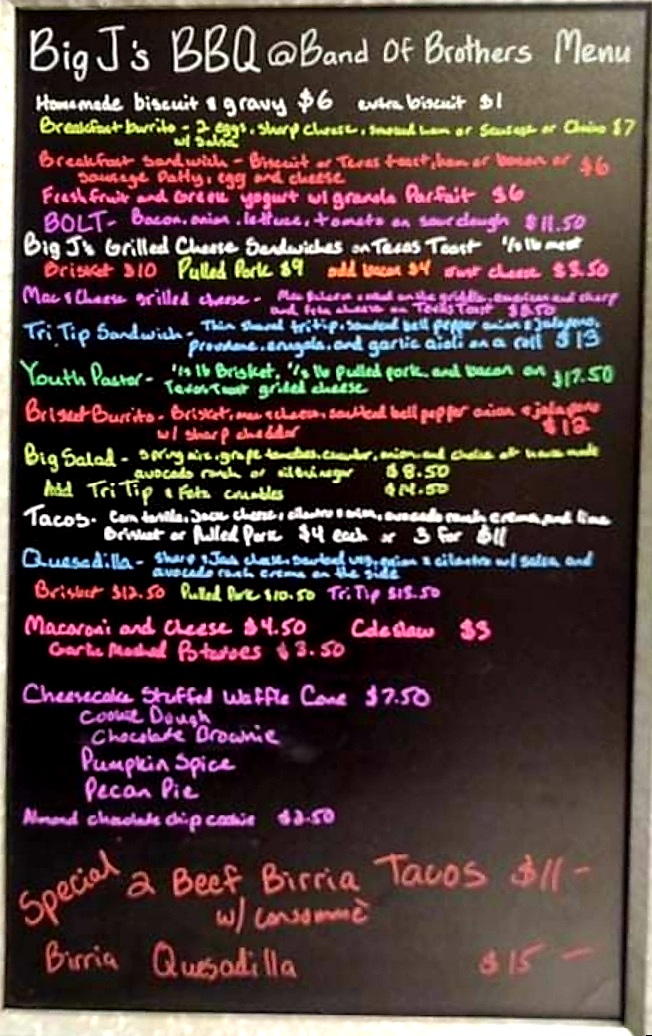 Big J's BBQ @ Band Of Brothers Menu
Homemade biscuit & gravy $6 extra biscuit $1
Breakfast burrito - 2 eggs, sharp cheese, smoked ham or Sausage or Chorizo $7
w/ Salsa
Breakfast Sandwich - Biscuit or Texas toast, ham or bacon or $6
Sausage Patty, egg and cheese
Fresh fruit and Greek yogurt w/ granola Parfait $6
BOLT - Bacon, onion, lettuce, tomato on sourdough $11.50
Big J's Grilled Cheese Sandwiches on Texas Toast 1/3 lb meat
Brisket $10 Pulled Pork $9 add bacon $4 Just cheese $3.50
Mac & Cheese grilled cheese - Mac & cheese on the griddle, american and sharp
and feta cheese on Texas Toast $8.50
Tri Tip Sandwich - Thin shaved tri tip, sauteed bell pepper onion & jalapeno,
provolone, arugula, and garlic aioli on a roll $13
Youth Pastor - 1/3 lb Brisket, 1/3 lb pulled pork, and bacon on $17.50
Texas Toast grilled cheese
Brisket Burrito - Brisket, mac & cheese, sauteed bell pepper onion & jalapeno
w/ sharp cheddar $12
Big Salad - Spring mix, grape tomatoes, onion, and choice of house made
avocado ranch or oil & vinegar $8.50
Add Tri Tip & Feta crumbles $14.50
Tacos - Corn tortilla, Jack cheese, cilantro & onion, avocado ranch crema, and lime
Brisket or Pulled Pork $4 each or 3 for $11
Quesadilla - Sharp & Jack cheese, sauteed veg, onion & cilantro w/ salsa and
avocado ranch crema on the side
Brisket $12.50 Pulled Pork $10.50 Tri Tip $13.50
Macaroni and Cheese $4.50 Coleslaw $3
Garlic Mashed Potatoes $3.50
Cheesecake Stuffed Waffle Cone $7.50
Cookie Dough
Chocolate Brownie
Pumpkin Spice
Pecan Pie
Almond chocolate chip cookie $2.50
Special 2 Beef Birria Tacos $11 -
w/ Consommè
Birria Quesadilla $15 -